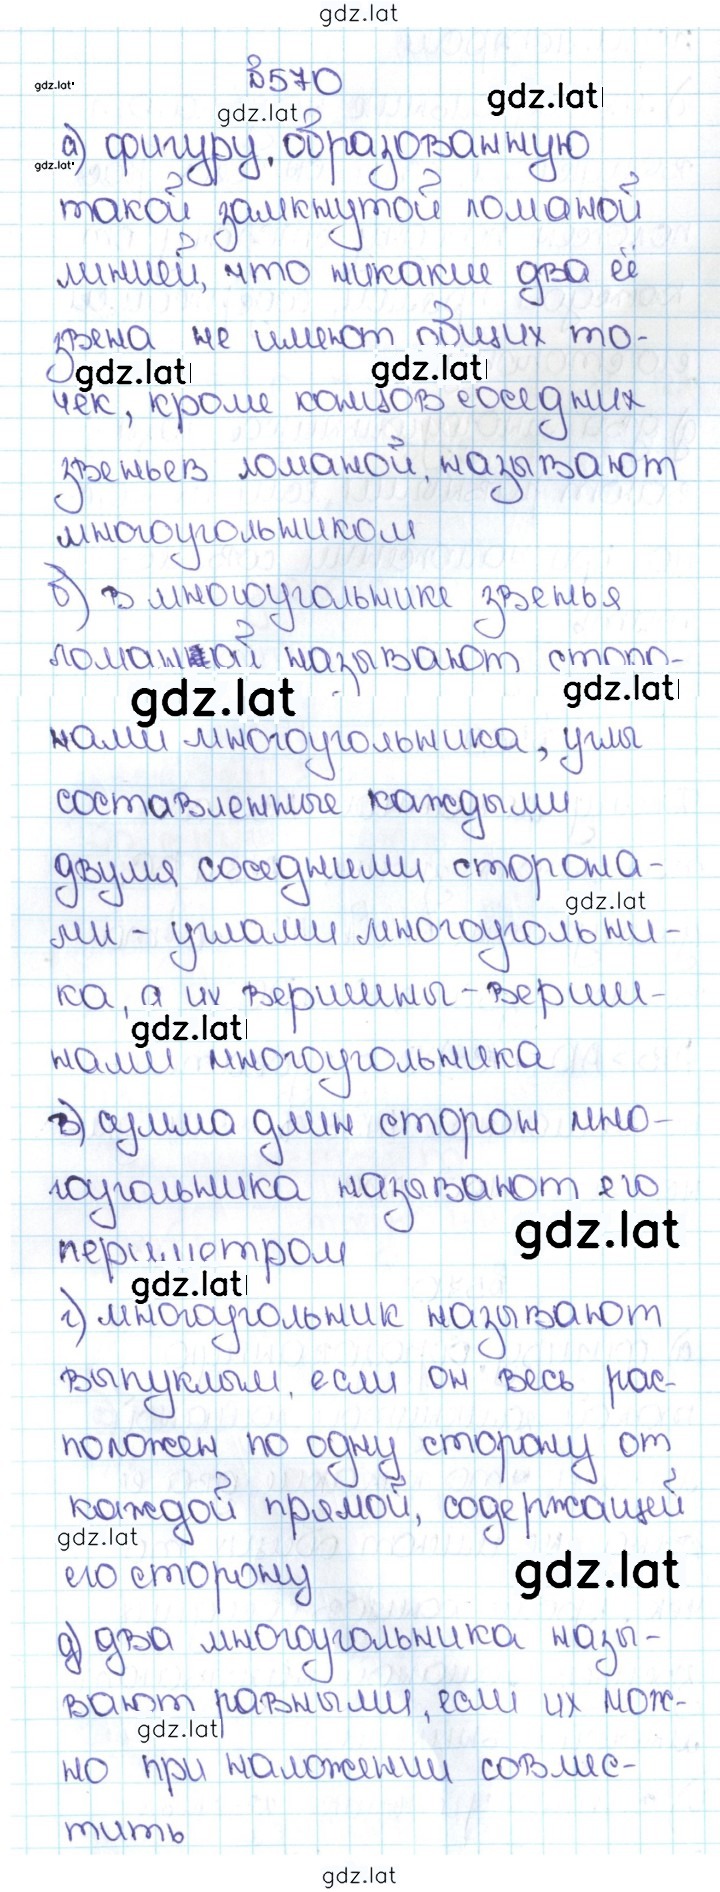 gdz.lat
№570
gdz.lat
gdz.lat
gdz.lat
а) фигуру, образованную
gdz.lat
такой замкнутой ломаной
линией, что никакие два её
звена не имеют общих то-
gdz.lat
gdz.lat
чек, кроме концов соседних
звеньев ломаной, называют
многоугольником
б) в многоугольнике звенья
ломаной называют сторо-
gdz.lat
gdz.lat
нами многоугольника, углы
составленные каждыми
двумя соседними сторона-
gdz.lat
ми - углами многоугольни-
ка, а их вершины - верши-
gdz.lat
нами многоугольника
в) сумма длин сторон мно-
гоугольника называют его
gdz.lat
периметром
gdz.lat
г) многоугольник называют
выпуклым, если он весь рас-
положен по одну сторону от
каждой прямой, содержащей
gdz.lat
его сторону
gdz.lat
д) два многоугольника назы-
вают равными, если их мож-
gdz.lat
но при наложении совмес-
тить
gdz.lat